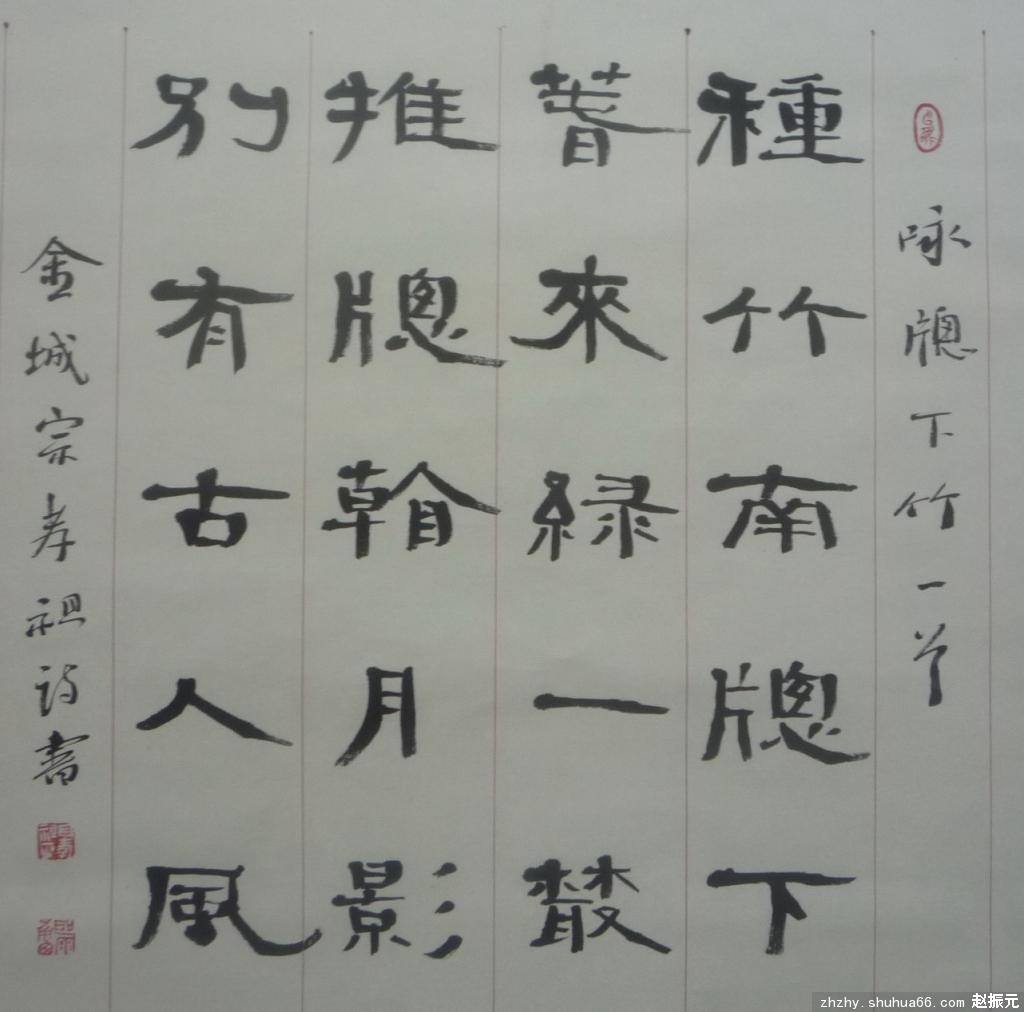 咏牕下竹一首
種竹南牕下
萅來緑一叢
推牕𥉼月影
別有古人風
金城宗孝祖詩書
zhzhy.shuhua66.com 赵振元